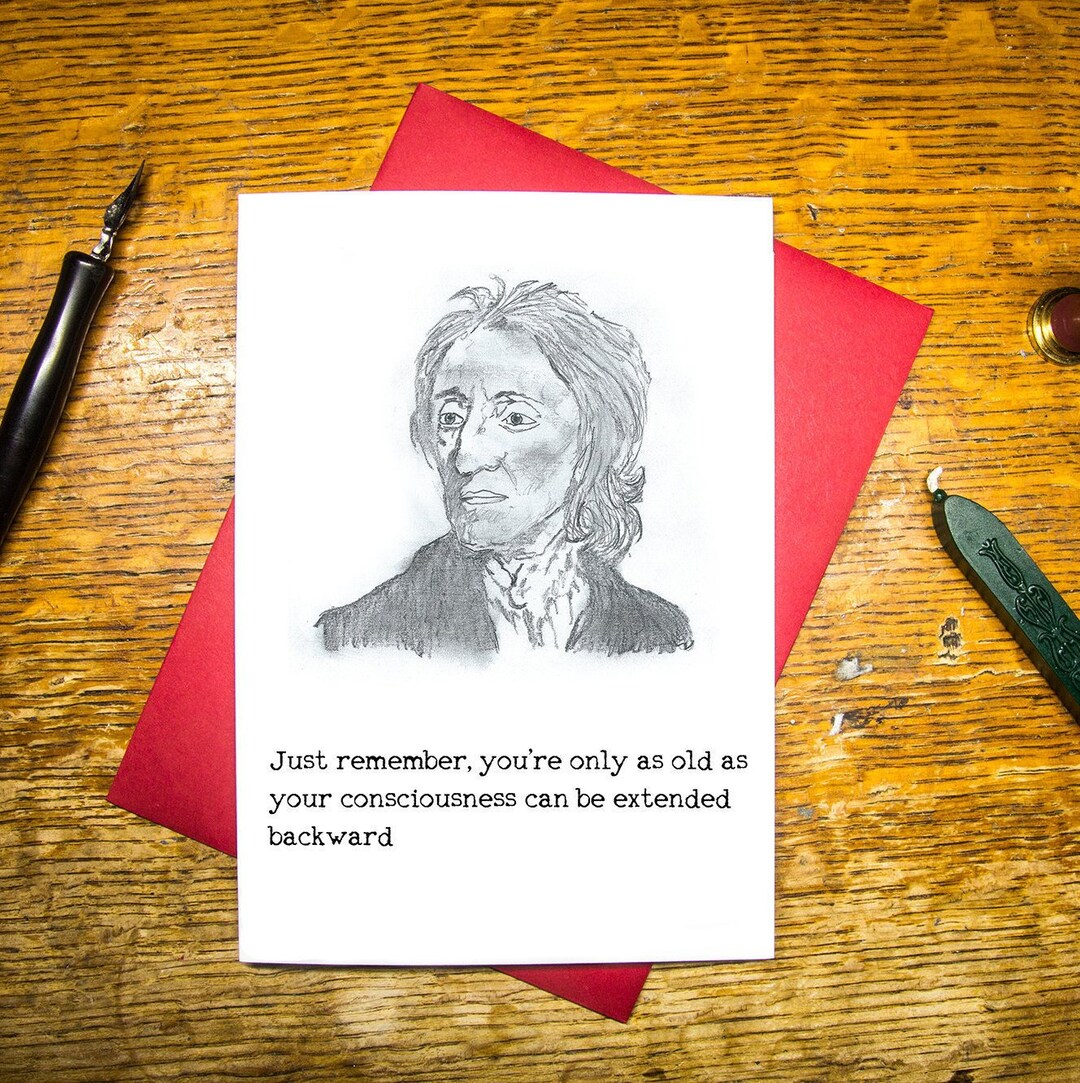 Just remember, you're only as old as
your consciousness can be extended
backward